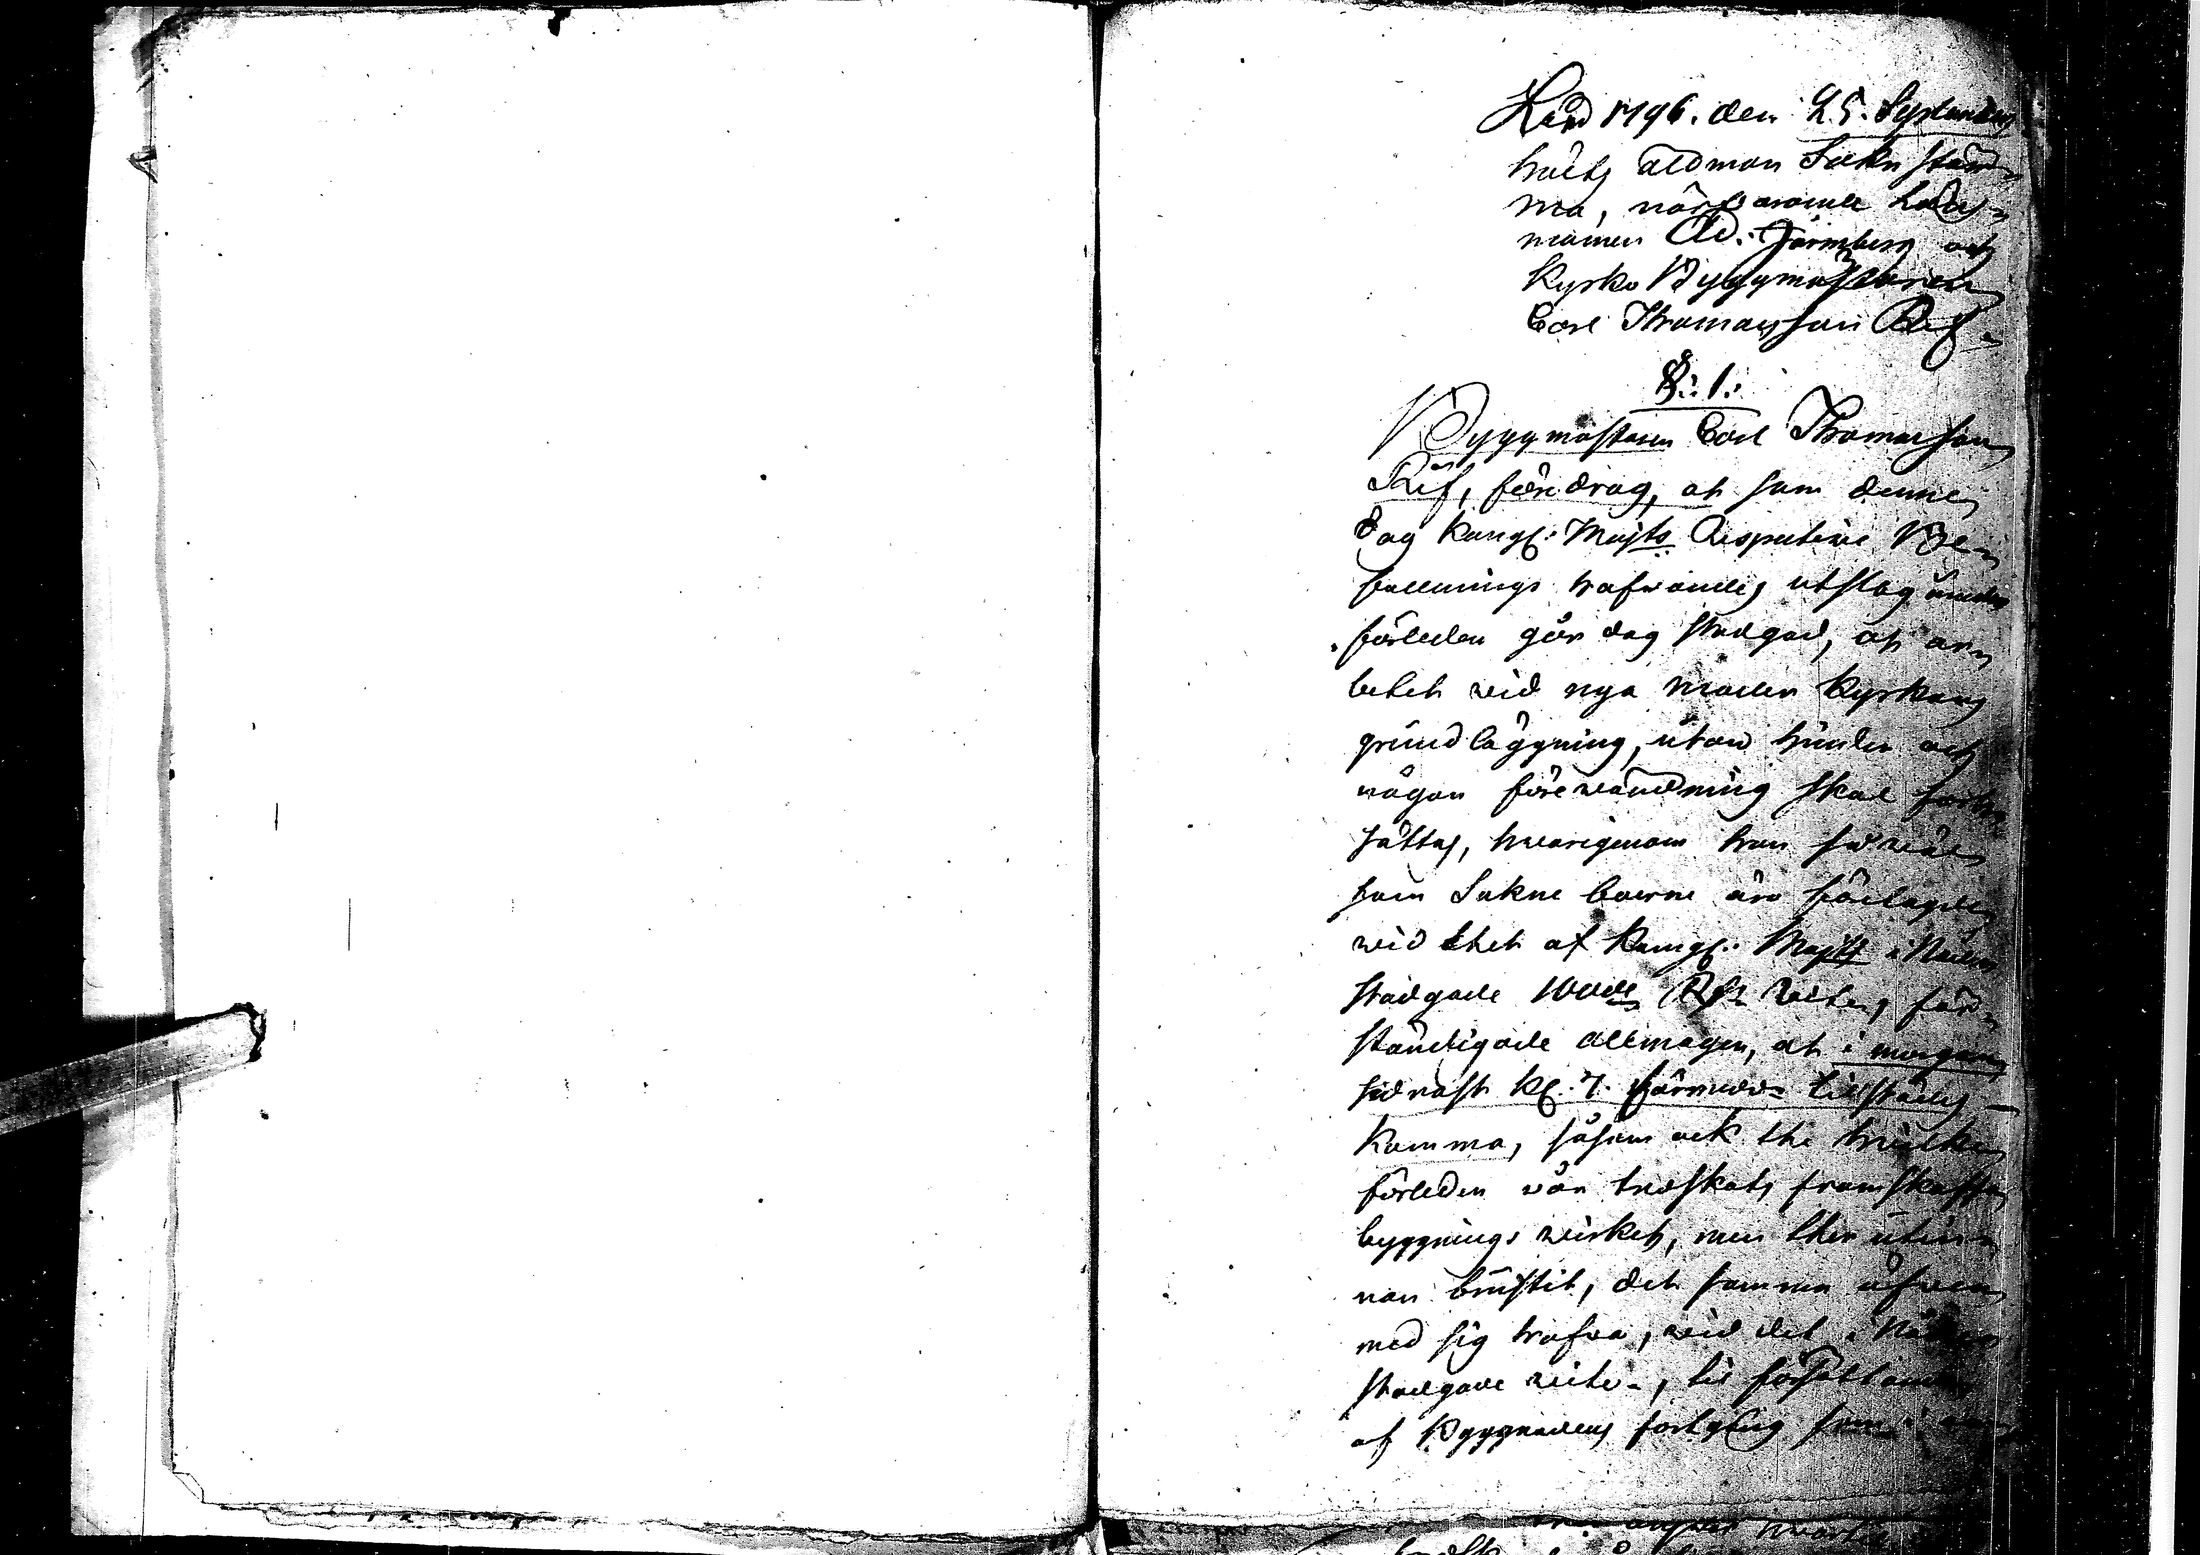 1796. den 25. Septembris
hölts allmän Sokn stäm-
ma, närwarande Läns-
mannen Ad. Järnberg och
Kyrko Byggmästaren
Carl Thomasson Rif.
§. 1.
Byggmästaren Carl Thomasson
Rif, föredrog, at som denne
dag Kongl. Majts Respective Be-
fallnings hafwandes utslag under
förleden går dag stadgad, at ar-
betet wid nya moder Kyrkans
grundläggning, utan hinder och
någon förewändning skal fort-
sättas, hwarigenom han så wäl
som Sokne boerne äro förelagde
wid thet af Kongl. Majtt i Nåder
stadgade 100de Rdr wite, för-
ständigade allmogen, at i morgon
sidnast Kl. 7. förmidd. tilstädes
komma, såsom ock the hwilka
förleden wår treskats framskaffa
byggnings wirket, men ther utin-
nan brustit, det samma äfwen
med sig hafwa, wid det i Nåder
stadgade wite, til fortsättande
af Byggnadens fortgång